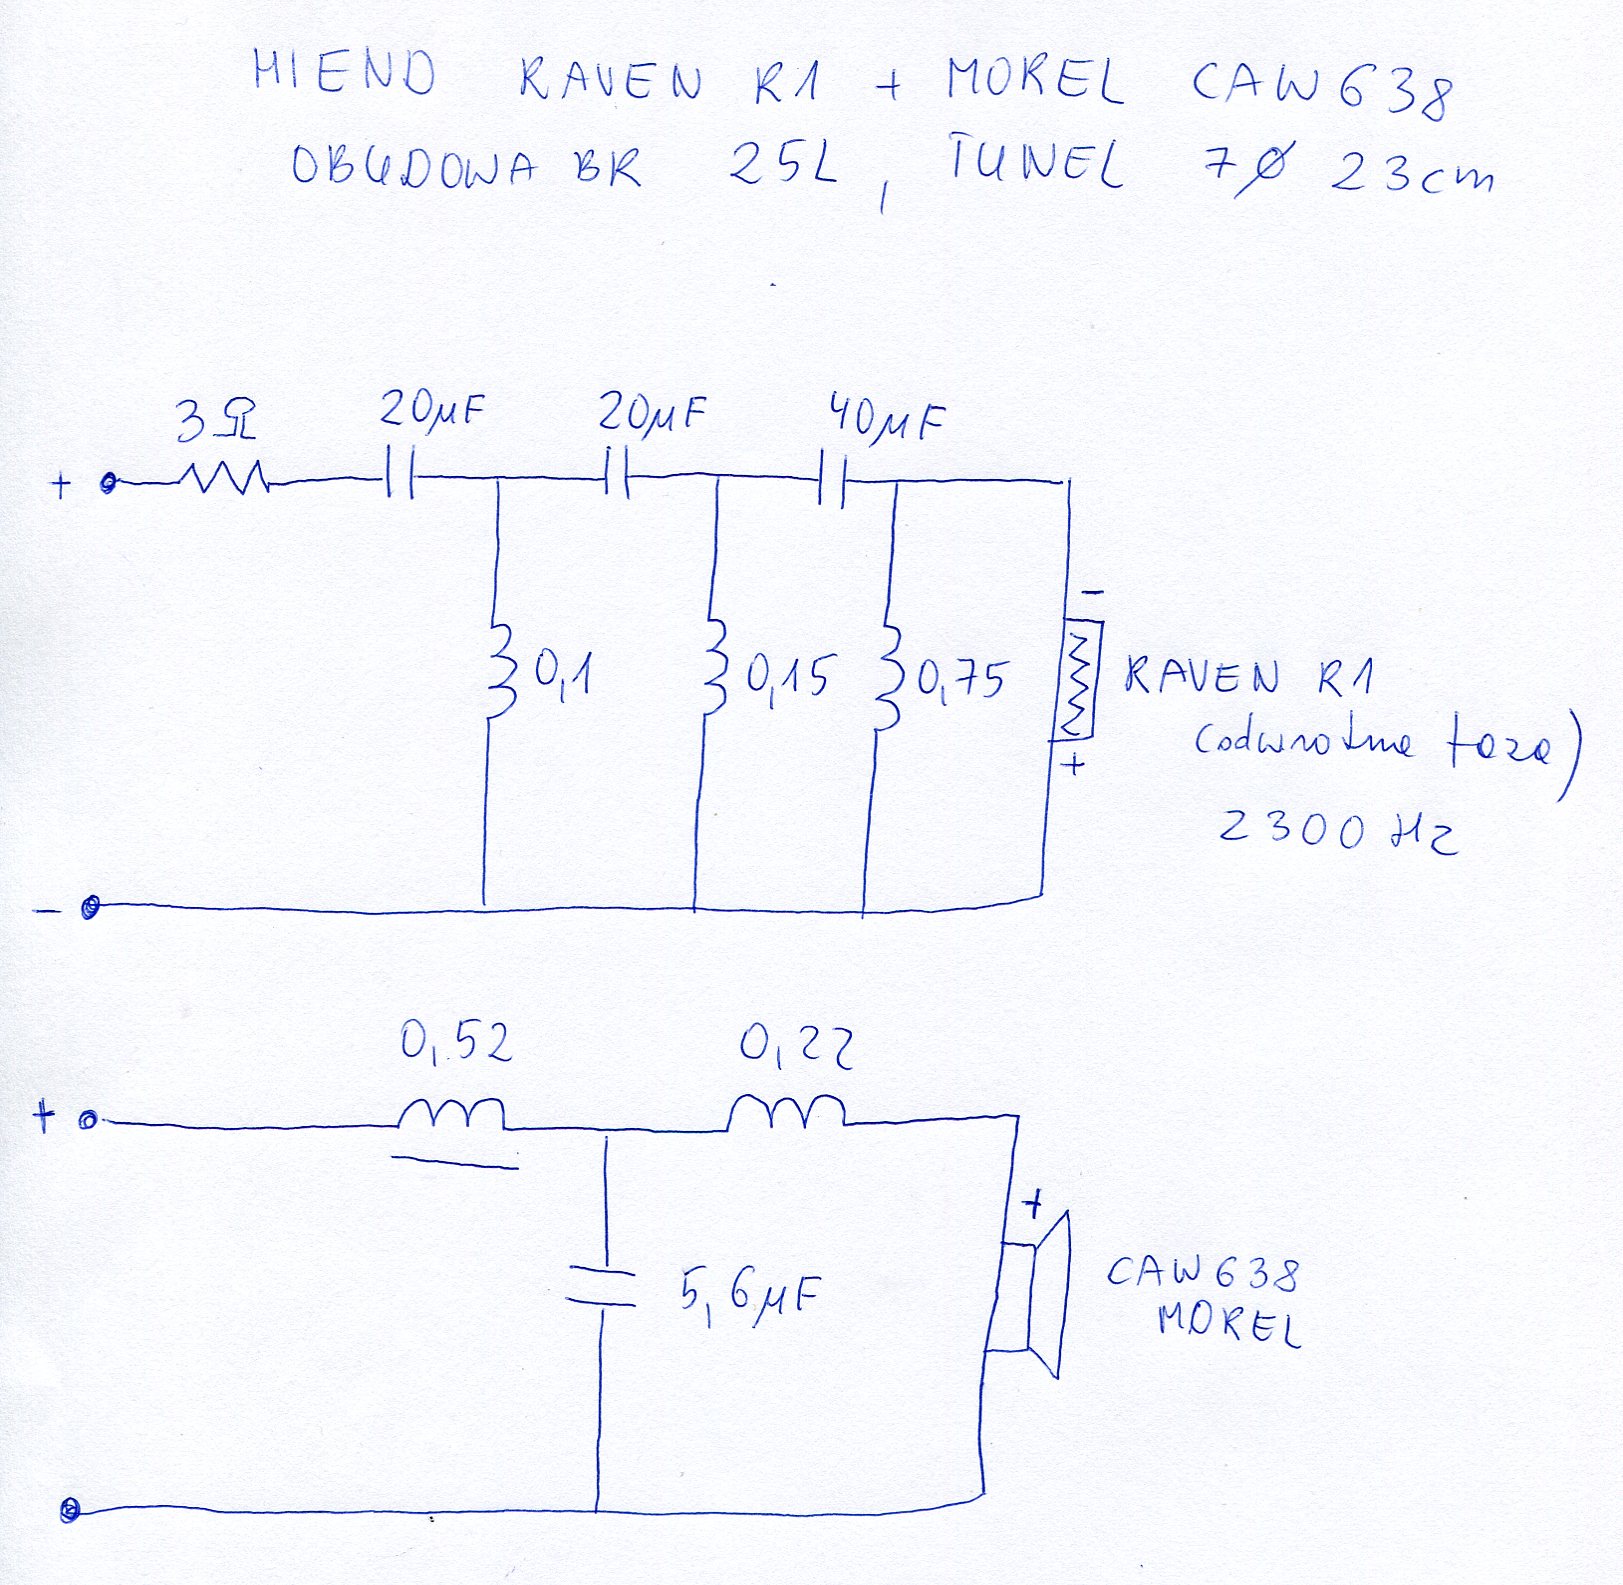 HIEND RAVEN R1 + MOREL CAW638
OBUDOWA BR 25L, TUNEL 7Ø 23cm
3Ω 20μF 20μF 40μF
+
-
0,1 0,15 0,75 RAVEN R1
(odwrotna faza)
+
2300 Hz
-
0,52 0,22
+
+
5,6μF CAW638
MOREL